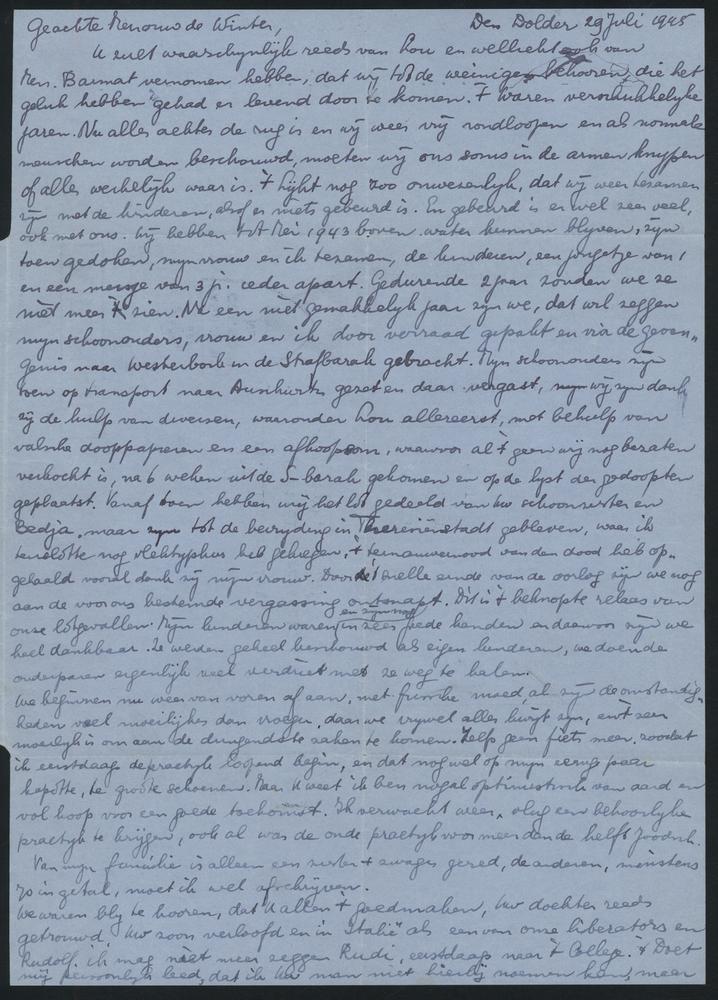 Geachte Mevrouw de Winter, Den Dolder 29 Juli 1945
U zult waarschynlyk reeds van Lou en wellicht ook van
Mevr. Barmat vernomen hebben, dat wy tot de weinigen behooren, die het
geluk hebben gehad er levend door te komen. 't Waren verschrikkelyke
jaren. Nu alles achter de rug is en wy weer vry rondloopen en als normale
menschen worden beschouwd, moeten wy ons soms in de armen knypen
of alles werkelyk waar is. 't Lykt nog zoo onwezenlyk, dat wy weer tezamen
zyn met de kinderen, alsof er niets gebeurd is. En gebeurd is er wel zeer veel,
ook met ons. Wy hebben tot Mei 1943 boven water kunnen blyven, zyn
toen gedoken, myn vrouw en ik tezamen, de kinderen, een jongetje van 1
en een meisje van 3 j. ieder apart. Gedurende 2 jaar zouden we ze
niet meer zien. Na een niet gemakkelyk jaar zyn we, dat wil zeggen
myn schoonouders, vrouw en ik door verraad gepakt en via de gevan„
genis naar Westerbork in de Strafbarak gebracht. Myn schoonouders zyn
toen op transport naar Auschwitz gezet en daar vergast, wy zyn dank
zy de hulp van diversen, waaronder Lou allereerst, met behulp van
valsche dooppapieren en een afkoopsom, waarvoor al 't geen wy nog bezaten
verkocht is, na 6 weken uit de S-barak gekomen en op de lyst der gedoopten
geplaatst. Vanaf toen hebben wy het lot gedeeld van Uw schoonzuster en
Bedja, maar zyn tot de bevryding in Theresiënstadt gebleven, waar ik
tenslotte nog vlektyphus heb gekregen, & ternauwernood van den dood heb op„
gehaald vooral dank zy myn vrouw. Door 't snelle einde van de oorlog zyn we nog
aan de voor ons bestemde vergassing ontsnapt. Dit is 't beknopte relaas van
onze lotgevallen. Myn kinderen waren en zyn nog in zeer goede handen en daarvoor zyn we
heel dankbaar. Ze werden geheel beschouwd als eigen kinderen, we doen de
onderduikouders eigenlyk veel verdriet met ze weg te halen.
We beginnen nu weer van voren af aan, met frissche moed, al zyn de omstandig„
heden veel moeilyker dan vroeger, daar we vrywel alles kwyt zyn, en 't zeer
moeilyk is om aan de dringendste zaken te komen. Zelfs geen fiets meer, zoodat
ik eerstdaags de practyk loopend begin, en dat nog wel op myn eenig paar
kapotte, te groote schoenen. Maar U weet ik ben nogal optimistisch van aard en
vol hoop voor een goede toekomst. Ik verwacht weer vlug een behoorlyke
practyk te krygen, ook al was de oude practyk voor meer dan de helft Joodsch.
Van myn familie is alleen een zuster & zwager gered, de anderen, minstens
70 in getal, moet ik wel afschryven.
We waren bly te hooren, dat U allen 't goed maken, Uw dochter reeds
getrouwd, Uw zoon verloofd en in Italië als een van onze liberators en
Rudolf, ik mag niet meer zeggen Rudi, eerstdaags naar 't College. 't Doet
my persoonlyk leed, dat ik Uw man niet hierby noemen kan, maar